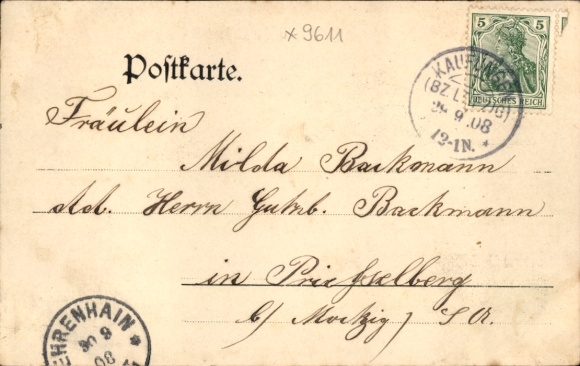 x 9611
5 5
DEUTSCHES REICH
KAUFUNGEN
(BZ LEIPZIG)
9.08
12-1N. *
Postkarte.
Fräulein
Milda Backmann
Adr. Herrn Gutsb. Backmann
in Prießelberg
b/ Mockzig / S. A.
EHRENHAIN *
30 9
08